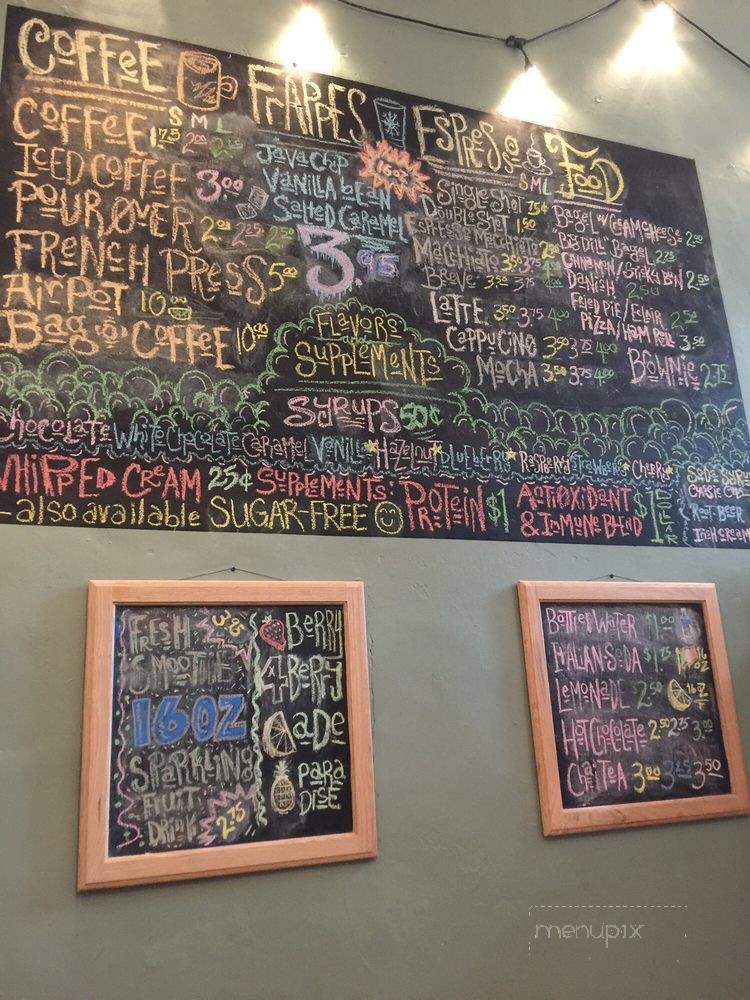 COFFEE
COFFEE S 1.75 M 2.00 L 2.25
ICED COFFEE 3.00
POUROVER 2.00 2.25 2.50
FRENCH PRESS 5.00
AIRPOT 10.00
BAG COFFEE 10.00
FRAPPES
16oz
JAVA CHIP
VANILLA BEAN
SALTED CARAMEL
3.95
ESPRESSO
S M L
SINGLE SHOT 75¢
DOUBLE SHOT 1.50
ESPRESSO MACCHIATO 2.00
MACCHIATO 3.50 3.75 4.00
BREVE 3.50 3.75 4.00
LATTE 3.50 3.75 4.00
CAPPUCINO 3.50 3.75 4.00
MOCHA 3.50 3.75 4.00
FOOD
BAGEL W/CREAMCHEESE 2.00
"BIG DILL" BAGEL 2.75
CINNAMON/STICKY BUN 2.50
DANISH 2.50
FRIED PIE/
2.50
PIZZA/HAM ROLL 3.50
BROWNIE 2.75
FLAVORS
and
SUPPLEMENTS
SYRUPS 50¢
CHOCOLATE WHITE CHOCOLATE CARAMEL VANILLA HAZELNUT BLUEBERRY RASPBERRY STRAWBERRY CHERRY
WHIPPED CREAM 25¢ SUPPLEMENTS: PROTEIN $1 ANTIOXIDENT & IMMUNE BLEND $1
- also available SUGAR-FREE
ROOT BEER
IRISH CREAM
FRESH
SMOOTHIE
16OZ
SPARKLING
FRUIT
DRINK 2.75
BERRY
4 BERRY
ADE
PARA
DISE
BOTTLED WATER $1.00
ITALIAN SODA $1.75 16 OZ
LEMONADE 2.50 16 OZ
HOT CHOCOLATE 2.50 2.75 3.00
CHAI TEA 3.00 3.25 3.50
menupix